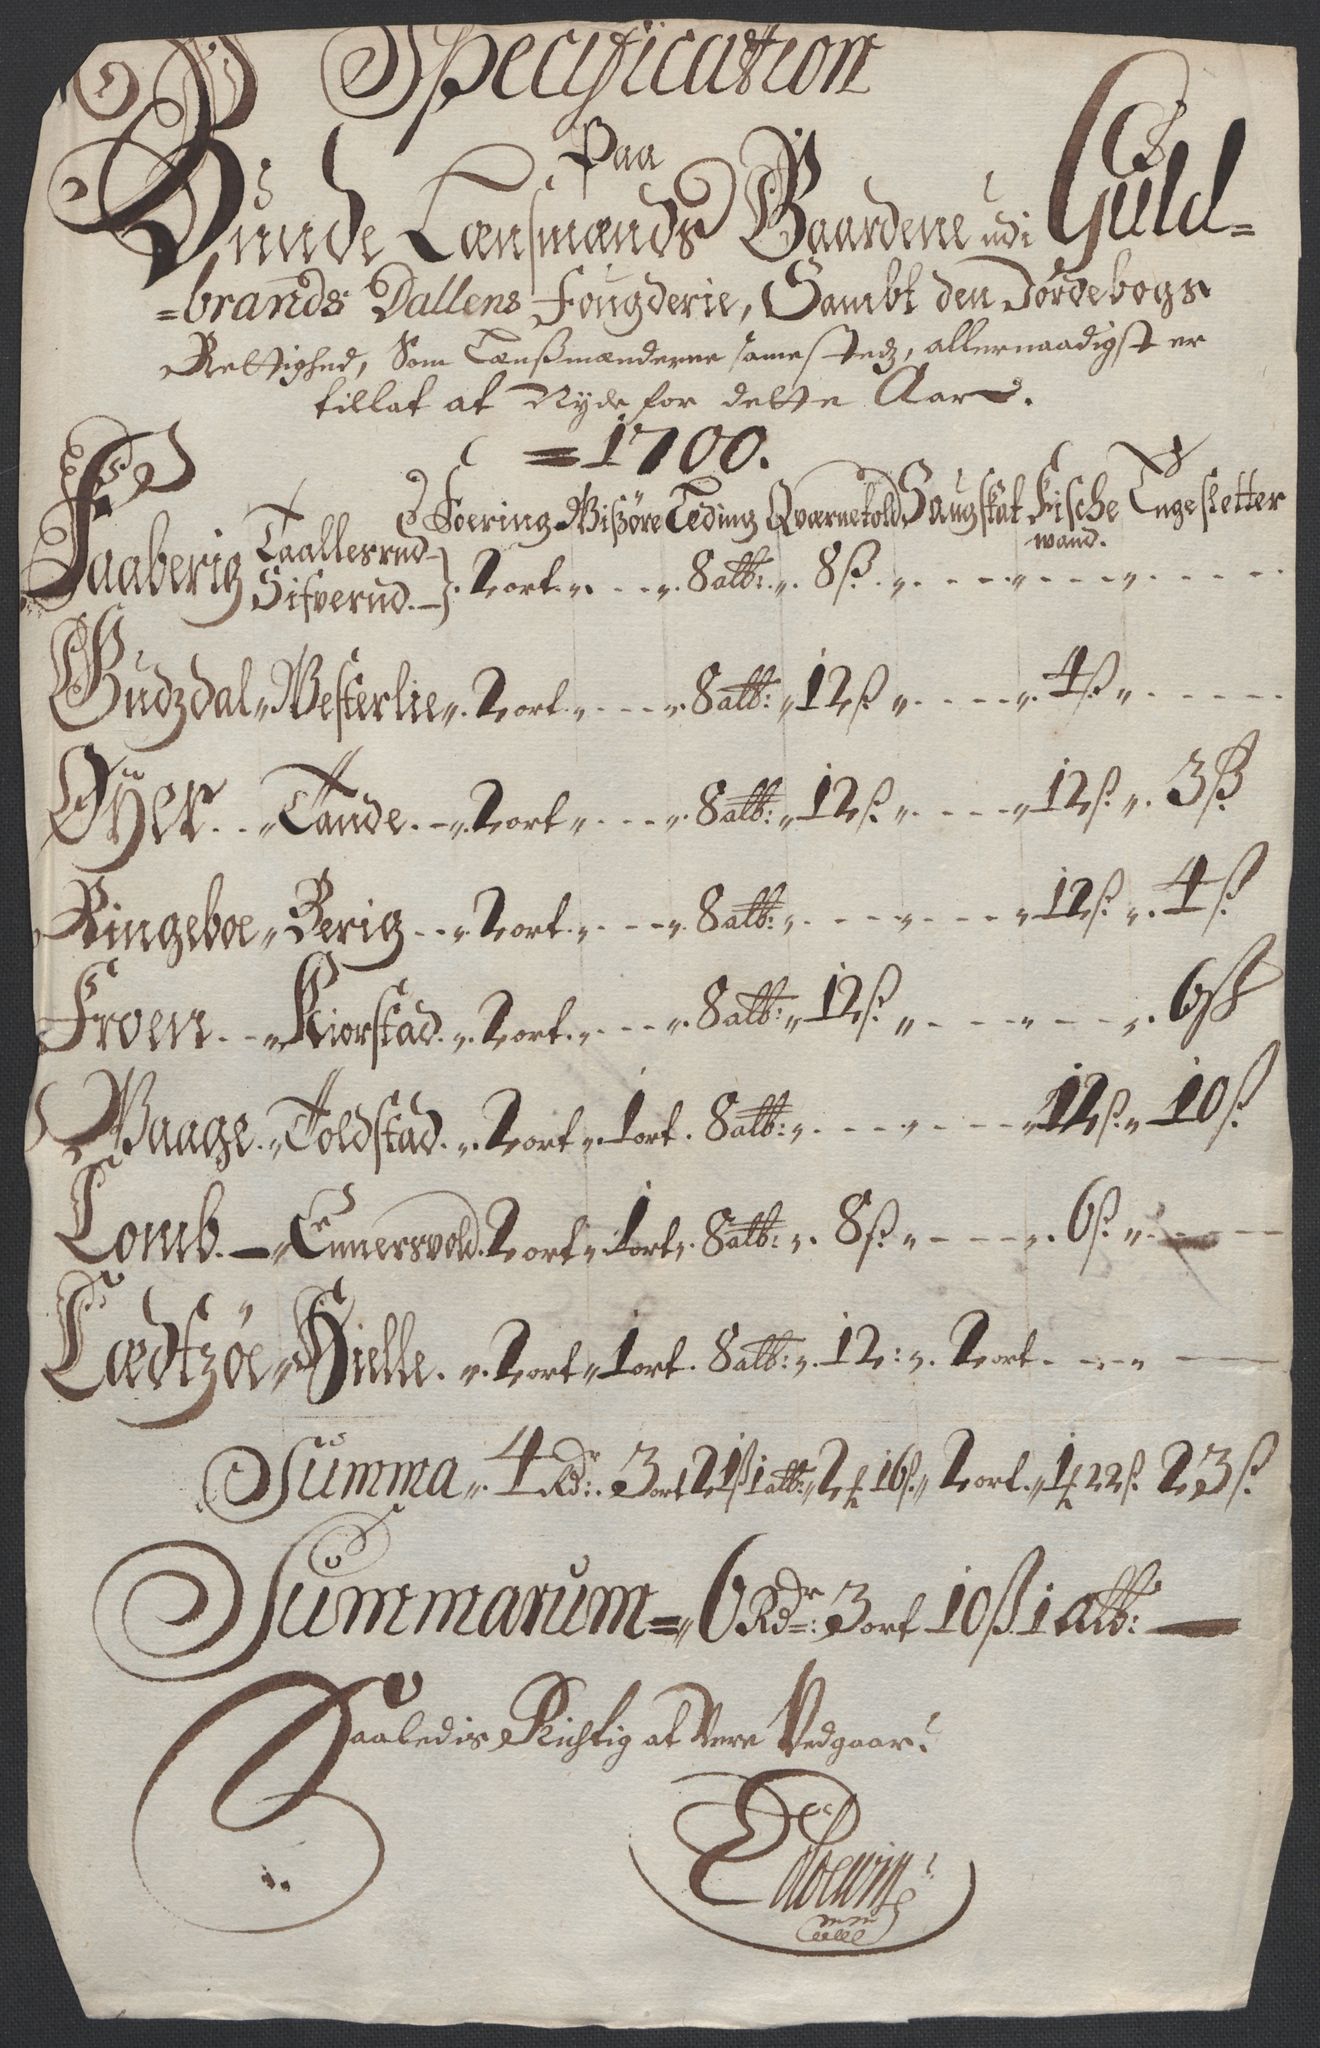 Specification
Paa
Bunde Lænsmænds Gaardene udi Guld=
=brands Dallens Fougderie, Sambt den Jordebogs
Rettighed, Som Lænßmænderne sammestedz, allernaadigst er
tillat at Nyde for dette Aar.
=1700.
Foering Wißøre Leding Qværnetold Saugskat Fische Engesletter
wand.
Faaberig Taallesrud
Sifverud } 2 ort 8 alb: 8 ß.
Gudzdal Westerlie 2 ort 8 alb: 12 ß 4 ß
Øÿer Tande 2 ort 8 alb: 12 ß. 12 ß. 3 ß
Ringeboe Berig 2 ort 8 alb: 12 ß. 4 ß
Froen Kiorstad 2 ort 8 alb: 12 ß. 6 ß
Waage Toldstad 2 ort 1 ort 8 alb: 12 ß. 10 ß
Lomb Ennersvold 2 ort 1 ort 8 alb: 8 ß. 6 ß.
Lædtzøe Hielle 2 ort 1 ort 8 alb: 12: 2 ort
Summa 4 Rdr: 3 ort 21 ß 1 alb: 2 # 16 ß. 2 ort 1 # 22 ß. 23 ß.
Summarum = 6 Rdr: 3 ort 10 ß 1 alb:
Saaledis Richtig at Vere Vedgaar.